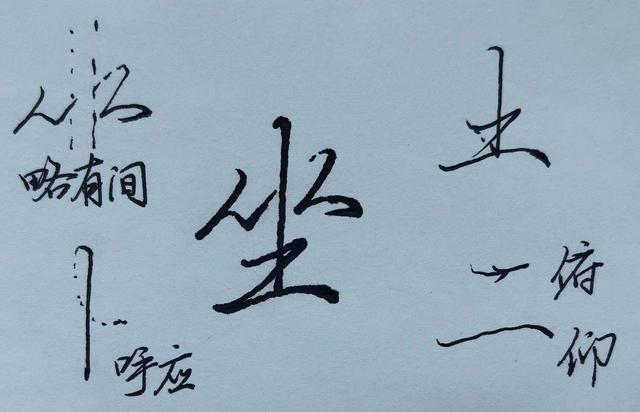 人人
略有间
呼应
坐
土
二
俯
仰